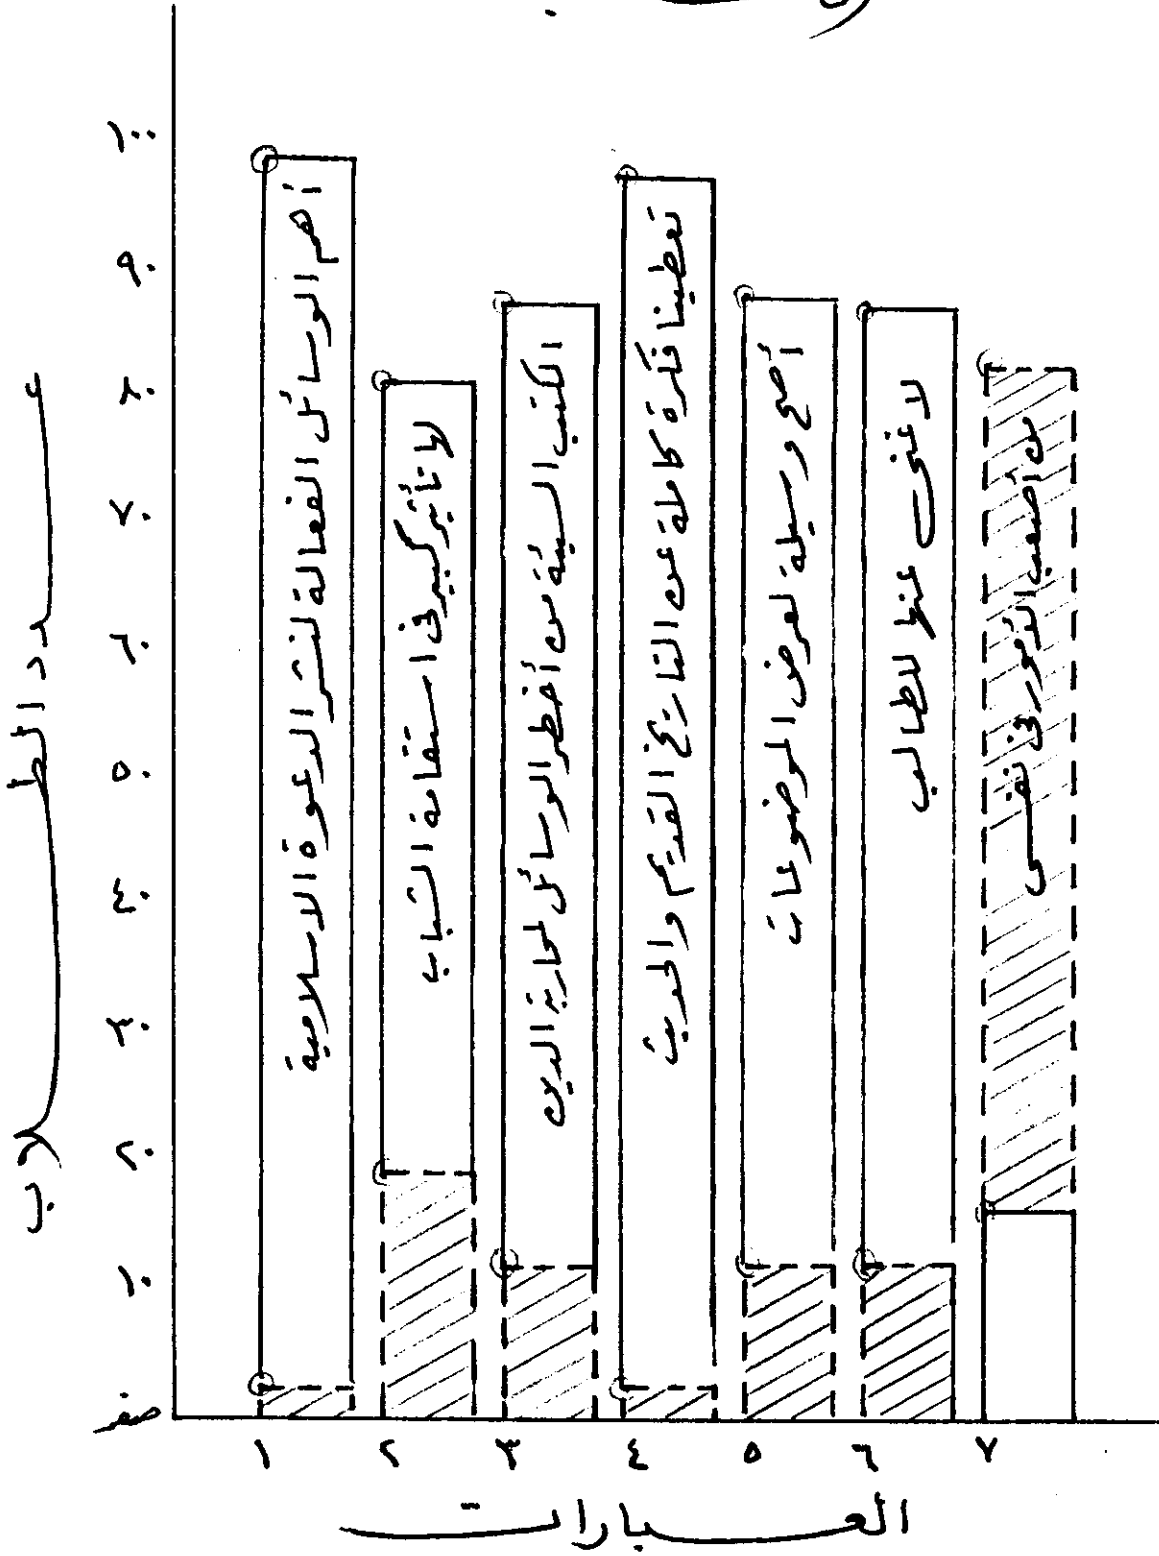 عدد الطلاب
١٠٠
٩٠
٨٠
٧٠
٦٠
٥٠
٤٠
٣٠
٢٠
١٠
صفر
أهم الوسائل الفعالة لنشر الدعوة الاسلامية
لها تأثير كبير فى استقامة الشباب
الكتب السيئة من أخطر الوسائل لمحاربة الدين
تعطينا فكرة كاملة عن التاريخ القديم والحديث
أصح وسيلة لعرض الموضوعات
لا غنى عنها للطالب
من أصعب الأمور فى نفسى
١ ٢ ٣ ٤ ٥ ٦ ٧
العبارات